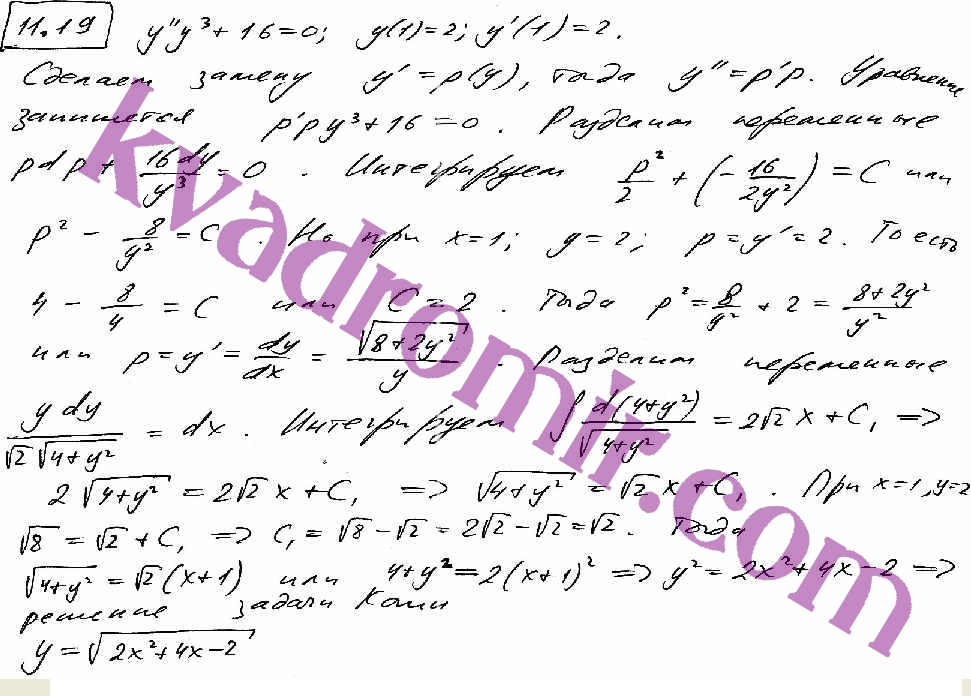 11.19 y''y³ + 16 = 0; y(1) = 2; y'(1) = 2.
Сделаем замену y' = p(y), тогда y'' = p'p. Уравнение
запишется p'py³ + 16 = 0. Разделим переменные
pdp + 16dy/y³ = 0. Интегрируем p²/2 + (-16/2y²) = C или
p² - 8/y² = C. Но при x=1; y=2; p=y'=2. То есть
4 - 8/4 = C или C = 2. Тогда p² = 8/y² + 2 = (8+2y²)/y²
или p = y' = dy/dx = √(8+2y²)/y. Разделим переменные
y dy/(√2 √(4+y²)) = dx. Интегрируем ∫ d(4+y²)/√(4+y²) = 2√2 x + C₁ =>
2√(4+y²) = 2√2 x + C₁ => √(4+y²) = √2 x + C₁. При x=1, y=2
√8 = √2 + C₁ => C₁ = √8 - √2 = 2√2 - √2 = √2. Тогда
√(4+y²) = √2(x+1) или 4+y² = 2(x+1)² => y² = 2x²+4x-2 =>
решение задачи Коши
y = √(2x²+4x-2)
kvadromir.com